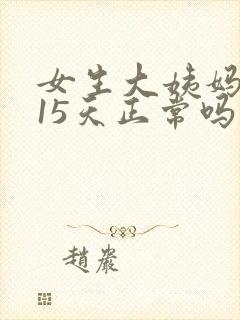 女生大姨妈
15天正常吗
趙嚴